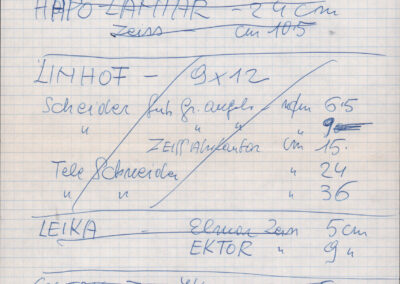 HAPO-LAMMAR - 24 cm
Zeiss - cm 10.5
LINHOF - 9x12
Scheider Sub Gr. angolo - m/m 6.5
" " " " 9
ZEISS cm 15.
Tele Schneider " 24
" " " 36
LEIKA - Elmar Zeiss 5 cm
EKTOR " 9 "